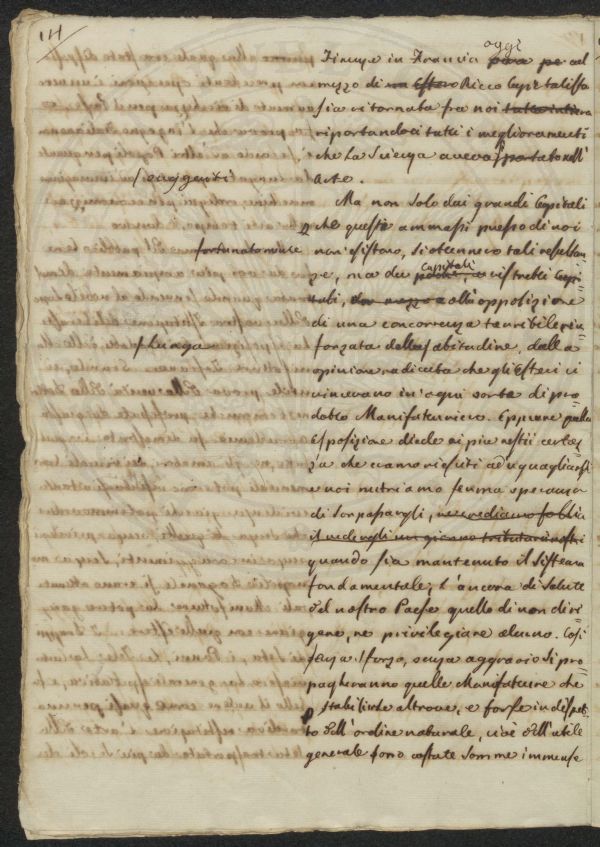 14
oggi
Firenze in Francia ad
mezzo di un Estero Ricco Capitalista
sia ritornata fra noi tutta intiera
riportandoci tutti i miglioramenti
che la Scienza aveva portato nell'
arte.
suggeriti
Ma non solo dai grandi Capitali
che questi ammassi presso di noi
fortunatamente
non esistano, si ottennero tali resultan
ze, ma dai
Capitali
ristretti Capi-
tali, alla oppolizione
di una concorrenza terribile rin-
forzata dalla abitudine, dalla
lunga
opinione radicata che gli Esteri ci
vincevano in ogni sorta di pro-
dotto Manifatturiero. Eppure quella
Esposizione diede ai più restii certez-
za che siamo riesciti ad uguagliarli
e noi nutriamo ferma speranza
di sorpassargli,
il vedergli un giorno tributari nostri
quando sia mantenuto il Sistema
fondamentale, l'ancora di salute
del nostro Paese quello di non diri
gere, ne privilegiare alcuno. Così
senza sforzo, senza aggravio si pro
pagheranno quelle Manifatture che
stabilirle altrove, e forse in dispet-
to dell'ordine naturale, cioè dell'utile
generale sono costate somme immense